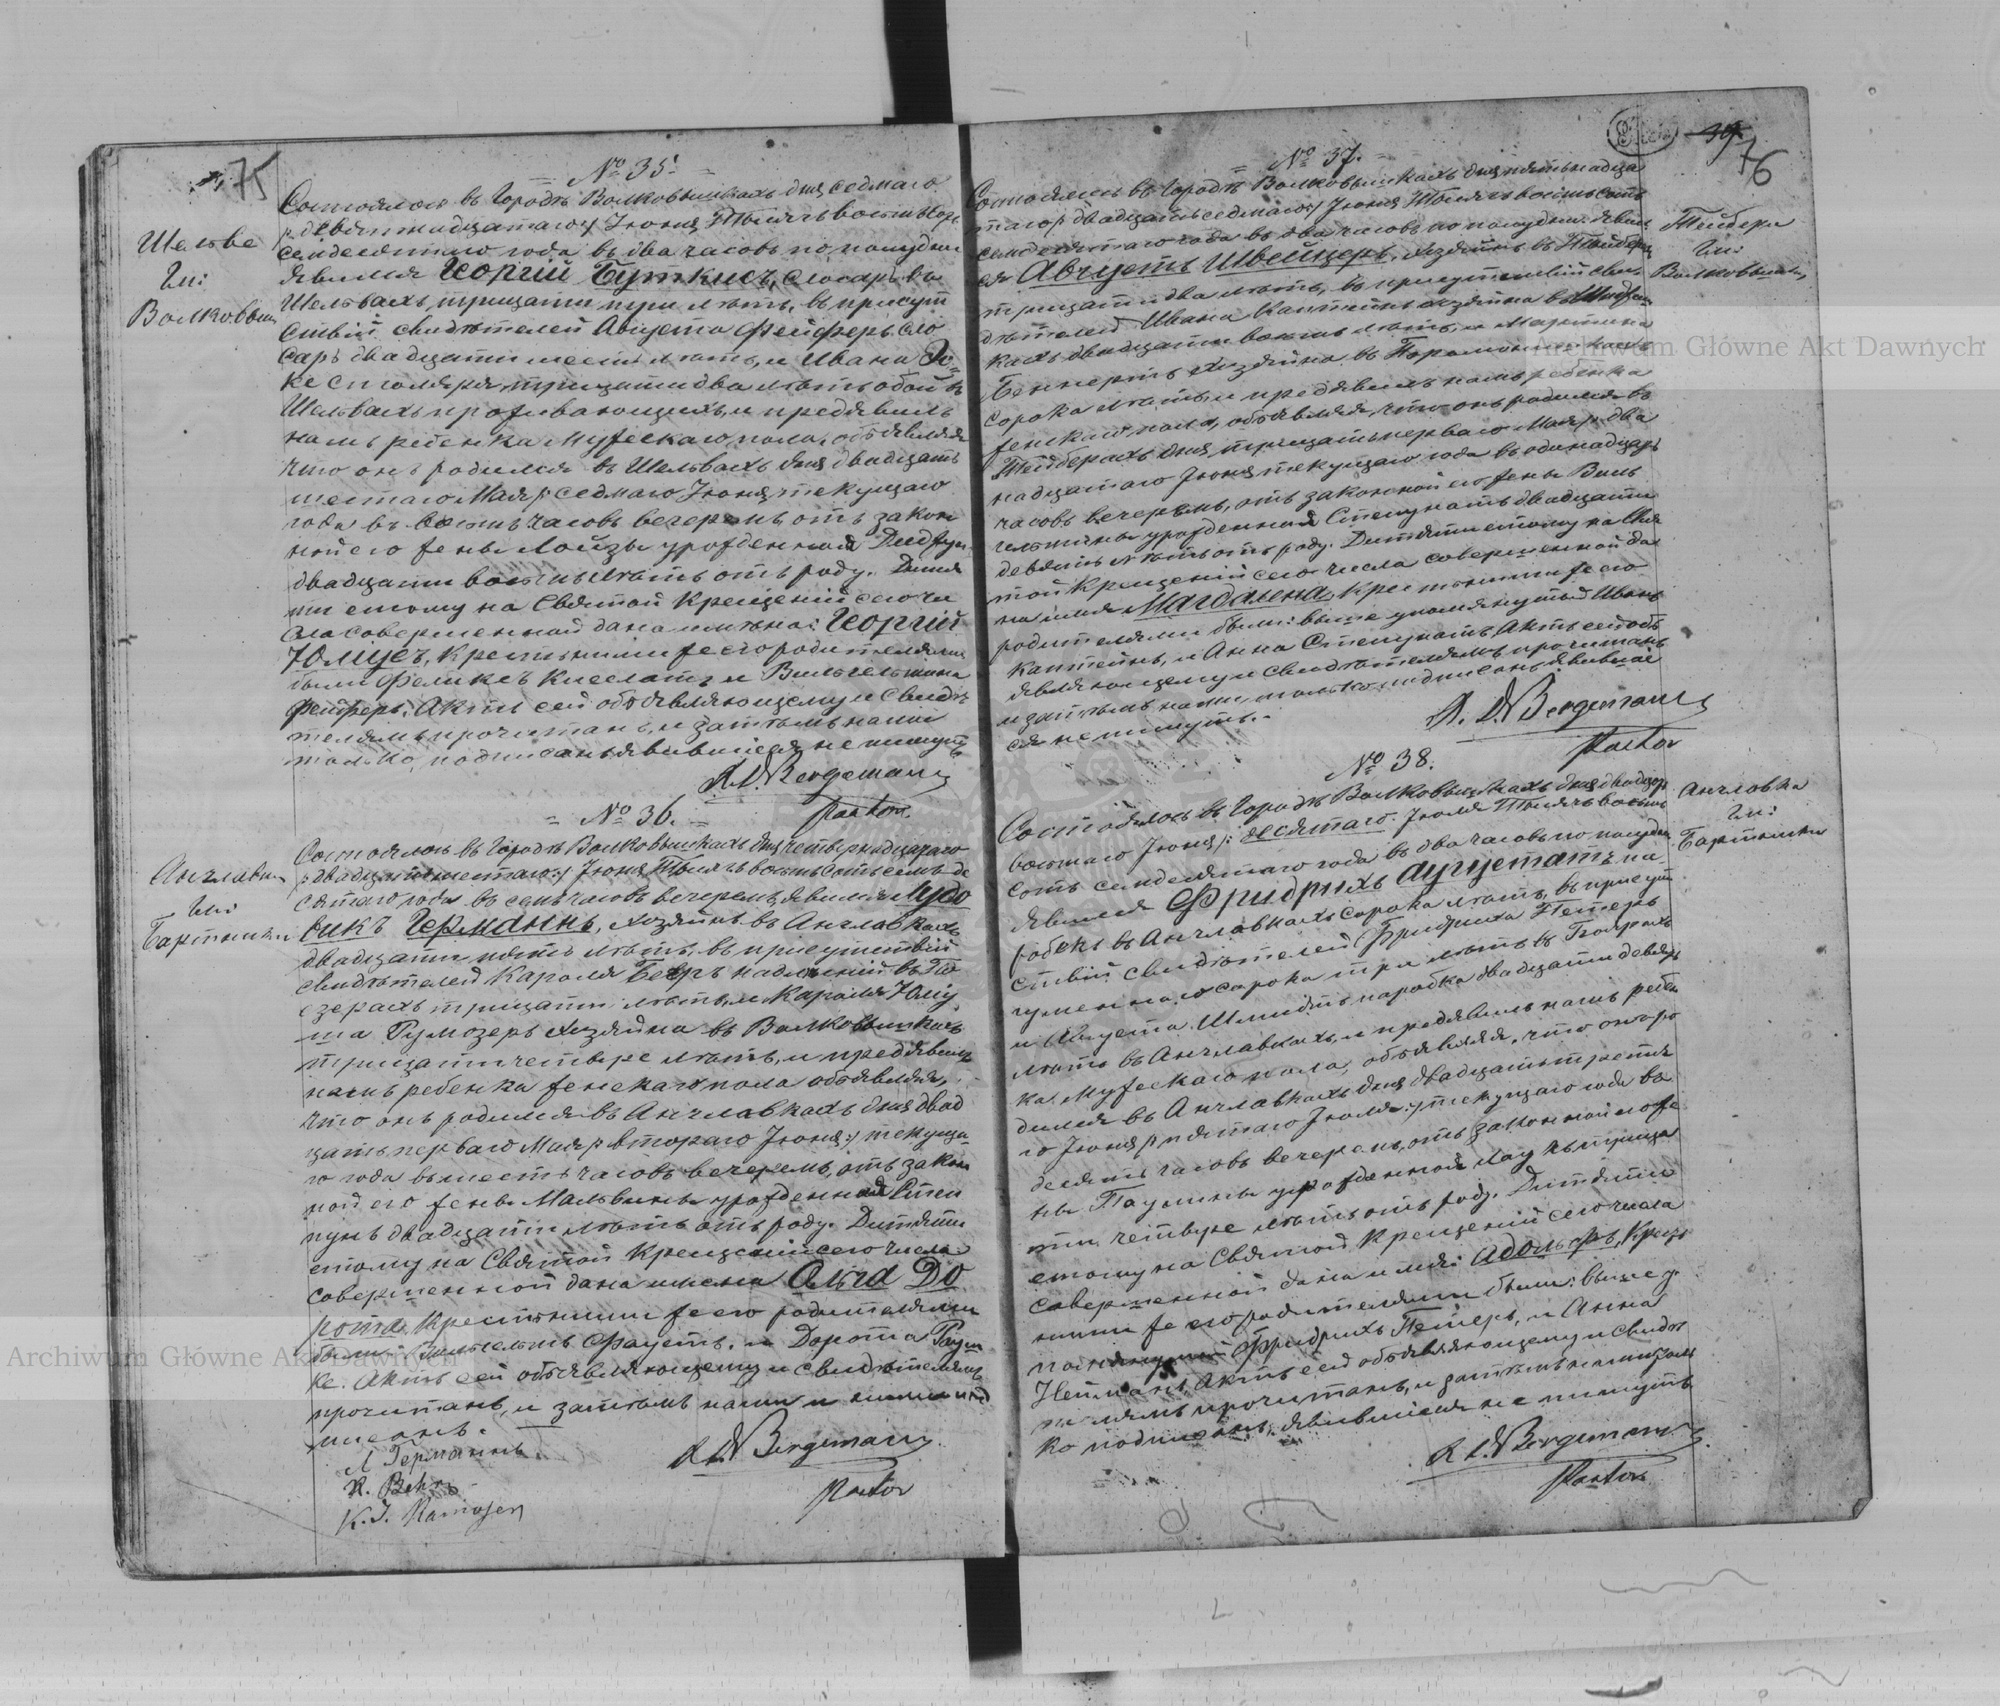 75
№ 35.
Шельве
Гм:
Волковыш
Состоялось въ Городѣ Волковышкахъ дня седмаго
/: девятнадцатаго :/ Іюня Тысяча восемьсотъ
семдесятаго года въ два часовъ по полудни
явился Георгій Буткисъ, слосаръ въ
Шельвахъ, тридцати три лѣтъ, въ присут
ствіи свидѣтелей Августа Фейферъ сло
саръ двадцати шесть лѣтъ, и Ивана
столяра, тридцати два лѣтъ обой въ
Шельвахъ проживающихъ, и предъявилъ
намъ ребенка Мужескаго пола, объявляя
что онъ родился въ Шельвахъ дня двадцать
шестаго Мая /: седмаго Іюня, текущаго
года въ восемь часовъ вечеромъ, отъ закон
ной его жены Лойзы урожденной
двадцати восемь лѣтъ отъ роду. Дитя
ти етому на Святой Крещеніи сего чи
сла совершенной дана имѣна: Георгій
Юліусъ, крестными же его родителями
были Феликсъ Киселатъ и Вильгельмина
Фейферъ. Актъ сей объявляющему и Свидѣ
телямъ прочитанъ, и затѣмъ нами
только подписанъ явившіеся не пишутъ
A. D. Bergemann
Pastor
№ 36.
Англавки
Гм:
Бартники
Состоялось въ Городѣ Волковышкахъ дня четырнадцатаго
/: двадцать шестаго :/ Іюня Тысяча восемьсотъ семь де
сятаго года въ семь часовъ вечеромъ, явился Лудо
викъ Германнъ, хозяинъ въ Англавкахъ
двадцати пять лѣтъ, въ присутствіи
свидѣтелей Кароля Бееръ надлесній въ По
езерахъ тридцати лѣтъ, и Кароля Юлiу
ша Румозеръ хозяина въ Волковышкахъ
тридцати четыре лѣтъ, и предъявилъ
намъ ребенка женскаго пола объявляя,
что онъ родился въ Англавкахъ дня двад
цать перваго Мая /: втораго Іюня :/ текуща
го года въ шесть часовъ вечеромъ, отъ закон
ной его жены Мальвины урожденной Степ
пунъ двадцати лѣтъ отъ роду. Дитяти
етому на Святой Крещеніи сего числа
совершенной дана имена Олга До
рота, крестными же его родителями
были: Вильгельмъ Фаустъ, и Дорота
ке. Актъ сей объявляющему и свидѣтелямъ
прочитанъ, и затѣмъ нами и ними под
писанъ.
Л Германнъ
K. Behr
K. J. Ramoser
A. D. Bergemann
Pastor
76
№ 37.
Тейбери
Гм:
Волковышки
Состоялось въ Городѣ Волковышкахъ дня пятьнадца
таго /: двадцать седмаго :/ Іюня Тысяча восемьсотъ
семдесятаго года въ два часовъ по полудни. явил
ся Августъ Швейцеръ, хозяинъ въ Тейберахъ
тридцати два лѣтъ, въ присутствіи сви
дѣтелей Ивана Каптейнъ хозяина въ
кахъ двадцати восемь лѣтъ, и Мартина
Беннертъ хозяина въ
сорока лѣтъ, и предъявилъ намъ ребенка
женскаго пола, объявляя, что онъ родился въ
Тейберахъ дня тридцать перваго Мая /: два
надцатаго Іюня текущаго года въ одинадцать
часовъ вечеромъ, отъ законной его жены Виль
гельмины урожденной Степунатъ двадцати
девять лѣтъ отъ роду. Дитяти етому на Свя
той Крещеніи сего числа совершенной да
на имя Магдалена, крестными же его
родителями были: выше упомянутый Иванъ
Каптейнъ, и Анна Степунатъ. Актъ сей объ
являющему и свидѣтелямъ прочитанъ
и затѣмъ нами, только подписанъ явившіе
ся не пишутъ.
A. D. Bergemann
Pastor
№ 38.
Англовка
Гм:
Бартники
Состоялось въ Городѣ Волковышкахъ дня двадцать
восьмаго Іюня /: десятаго Іюля Тысяча восемь
сотъ семдесятаго года въ два часовъ по полудни
явился Фридрихъ Аугустатъ па
робекъ въ Англавкахъ сорока лѣтъ, въ присут
ствіи свидѣтелей Фридриха Петеръ
гуменнаго сорока три лѣтъ въ
и Августа Шмидтъ паробка двадцати девять
лѣтъ въ Англавкахъ, и предъявилъ намъ ребен
ка Мужескаго пола, объявляя, что онъ ро
дился въ Англавкахъ дня двадцать третя
го Іюня /: пятаго Іюля :/ текущаго года въ
десять часовъ вечеромъ, отъ законной его же
ны Паулины урожденной Лаукъ тридца
ти четыре лѣтъ отъ роду. Дитяти
етому на Святой Крещеніи сего числа
совершенной дана имя: Адольфъ, крест
ными же его родителями были: выше у
помянутый Фридрихъ Петеръ, и Анна
Нейманъ. Актъ сей объявляющему и свидѣ
телямъ прочитанъ, и затѣмъ нами толь
ко подписанъ, явившіеся не пишутъ
A. D. Bergemann
Pastor
Archiwum Główne Akt Dawnych
Archiwum Główne Akt Dawnych